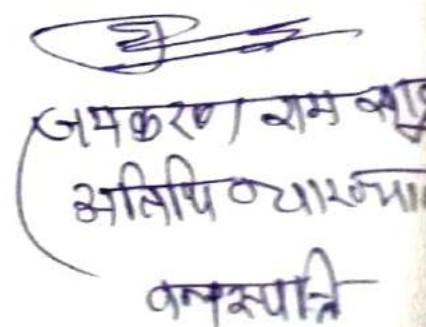 जयकरण राम साहू
अतिथि व्याख्या
वनस्पति